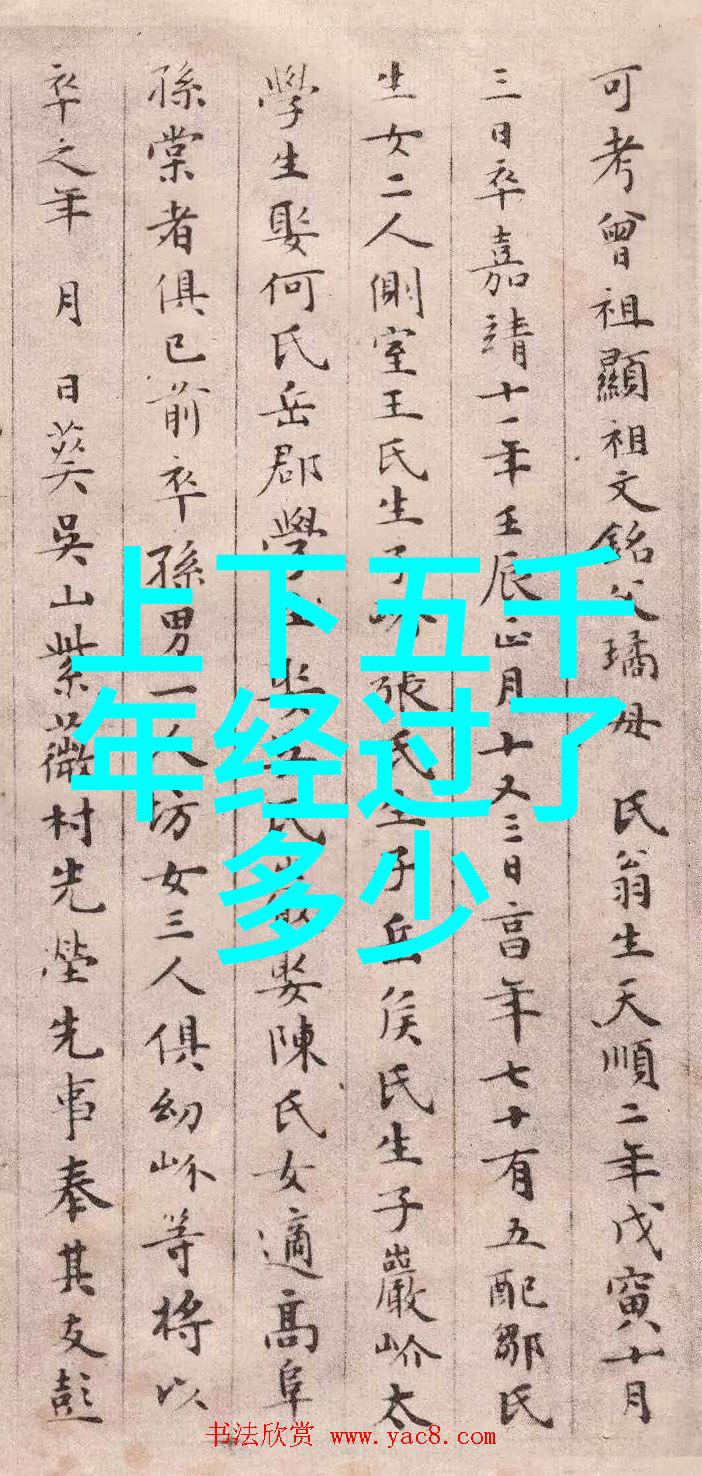 可考曾祖顯祖文銘父璚母 氏翁生天順二年戊寅十月
三日卒嘉靖十一年壬辰正月十又三日享年七十有五配鄒氏
生女二人側室王氏生子張氏生子岳侯氏生子巖岕太
學生娶何氏岳郡學生氏娶陳氏女適髙阜
孫棠者俱已前卒孫男一人坊女三人俱幼岕等將以
卒之年 月 日葬吳山紫薇村先塋先事奉其友彭
上下五千
年经过了
多少
书法欣赏 www.yac8.com